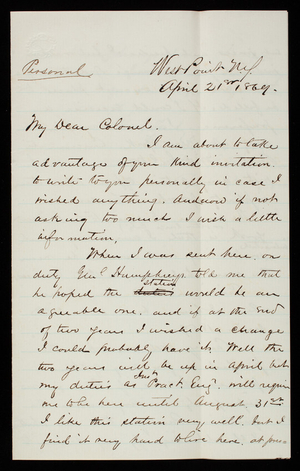 Personal
West Point N.Y.
April 21st 1869.
My Dear Colonel,
I am about to take
advantage of your kind invitation
to write to you personally in case I
wished anything. And now if not
asking too much I wish a little
information.
When I was sent here, on
duty Genl Humphreys told me that
station
he hoped the would be an
agreeable one, and if at the end
of two years I wished a change
I could probably have it. Well the
two years will be up in April but
my duties as Pract. Eng. will require
me to be here until August 31st
I like this station very well. but I
find it very hard to live here, at pres